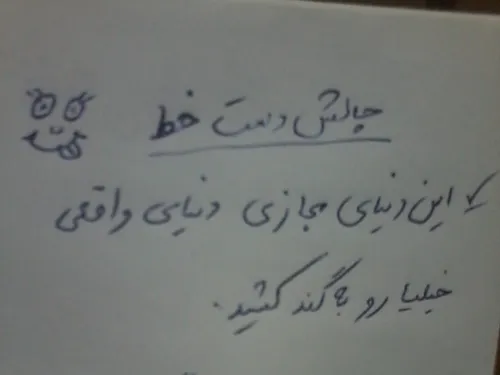 چالش دست خط
این دنیای مجازی دنیایی واقعی
خیلیا رو به گند کشید.